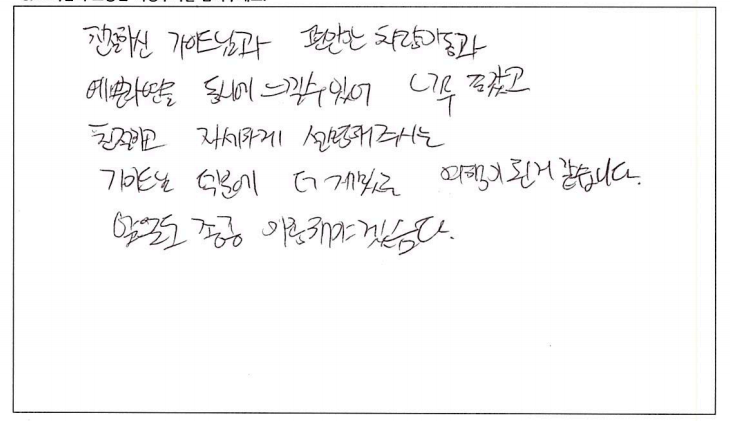 친절하신 가이드님과 편안한 차량이동과
예쁜자연을 동시에 느낄수 있어 너무 좋았고
친절하고 자세하게 설명해주시는
가이드님 덕분에 더 재밌는 여행이 된거 같습니다.
앞으로도 종종 이용해야겠습니다.